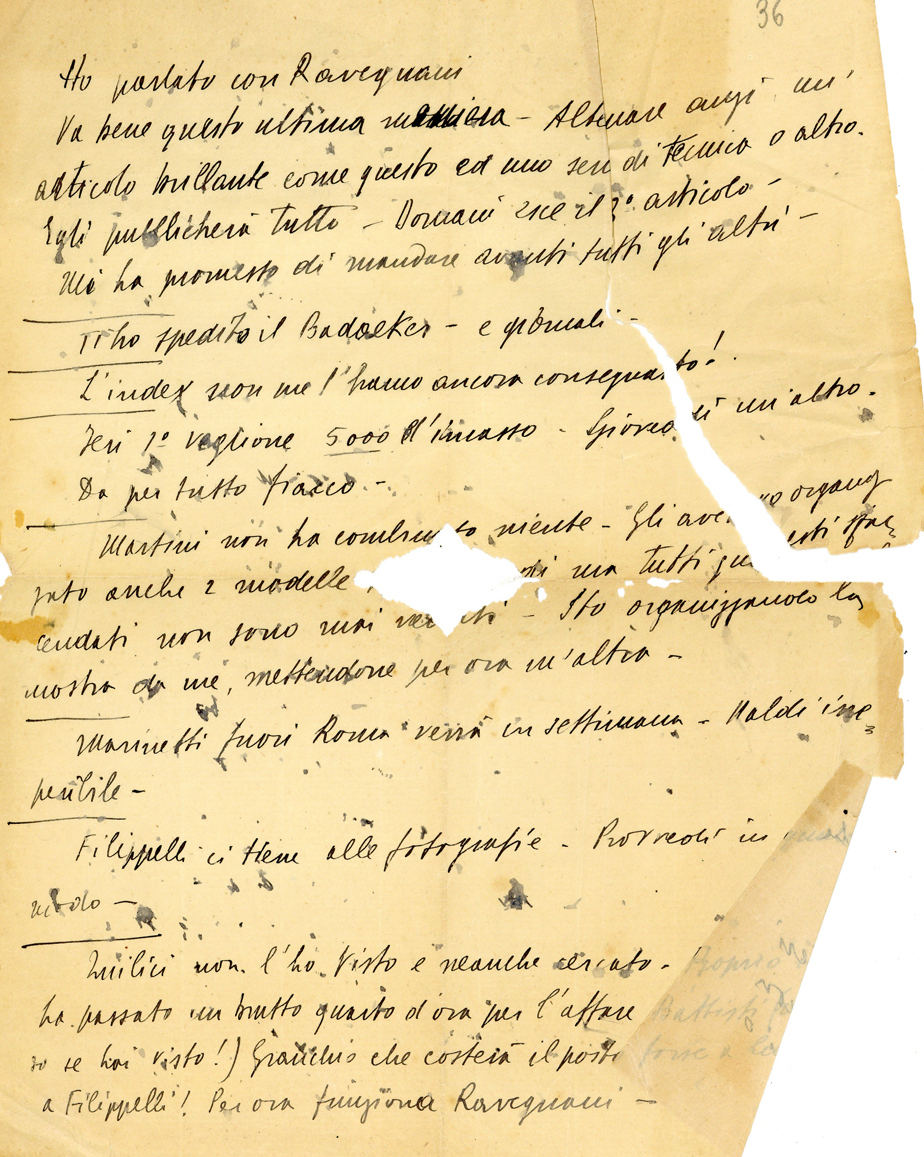 36
Ho parlato con Ravegnani
Va bene questo ultima maniera - Alternare anzi un'
articolo brillante come questo ed uno seri di tecnica o altro.
Egli pubblicherà tutto - Domani esce il 3° articolo -
Mi ha promesso di mandare avanti tutti gli altri -
Ti ho spedito il Badaeker - e giornali -
L'index non me l'hanno ancora consegnato!
Jeri 1° veglione 5000 d'incasso - Giovedì un'altro.
Da per tutto fiacco -
Martini non ha combinato niente - Gli avevo organiz
zato anche 2 modelle ma tutti questi sfac
cendati non sono mai venuti - Sto organizzando la
mostra da me, mettendone per ora un'altra -
Marinetti fuori Roma verrà in settimana - Naldi ire
peribile -
Filippelli ci tiene alle fotografie - Provvedi in
modo -
Quilici non l'ho visto e neanche cercato - Proprio
ha passato un brutto quarto d'ora per l'affare Battisti
so se hai visto!) Granchio che costerà il posto forse a
a Filippelli! Per ora funziona Ravegnani -